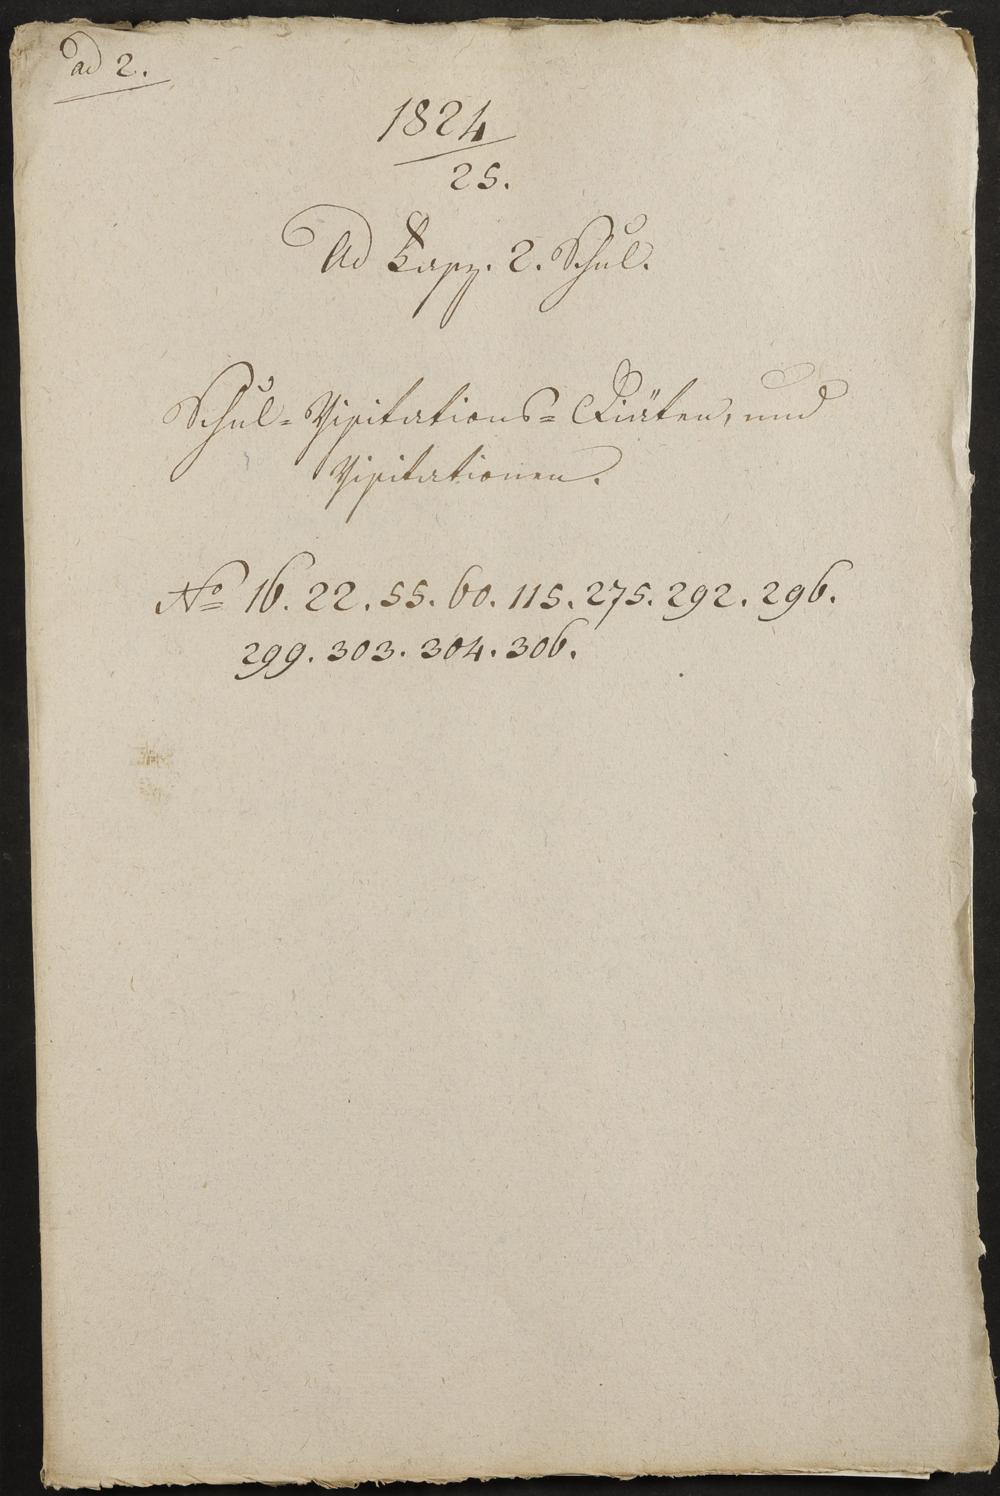 ad 2.
1824
25.
Ad Fasz. 2. Schul.
Schul-Visitations-Diäten, und
Visitationen.
No 16. 22. 55. 60. 115. 275. 292. 296.
299. 303. 304. 306.